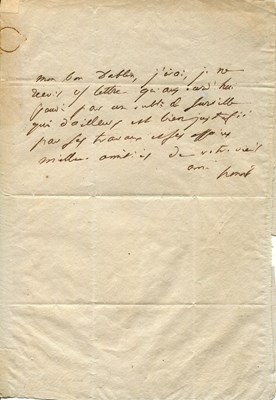 mon bon Dablin, j'irai, je ne
reçois v/ lettre qu'aujourd'hui
jeudi par un oubli de Surville
qui d'ailleurs est bien justifié
par ses travaux et ses affaires
mille amitiés de votre vieil
ami